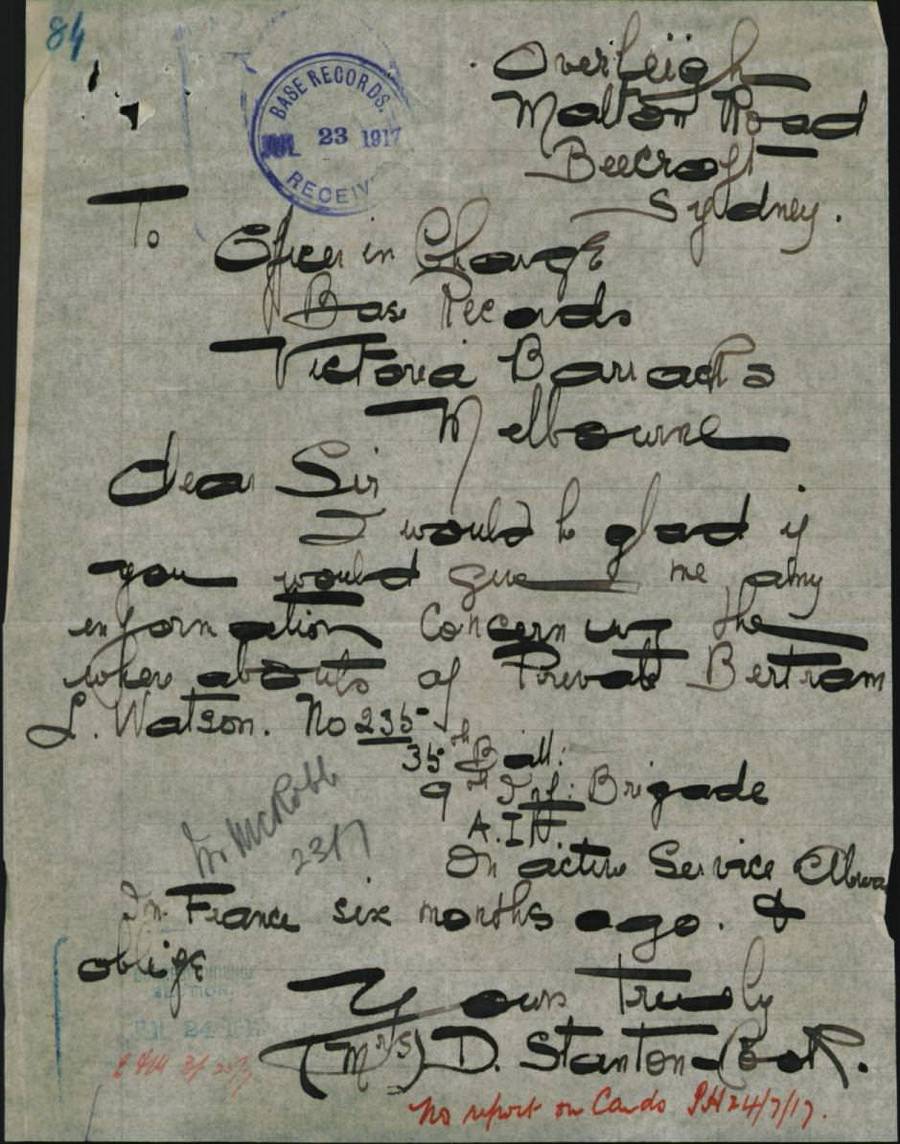 84
BASE RECORDS.
JUL 23 1917
RECEIV
Overleigh
Malton Road
Beecroft
Sydney.
To
Officer in Charge
Base Records
Victoria Barracks
Melbourne
Dear Sir
I would be glad if
you would give me any
information concerning the
whereabouts of Private Bertram
L. Watson. No 235
35th Batt:
9th Inf: Brigade
A.I.F
On active Service Abroa
Mr McRobb
23/7
In France six months ago. &
oblige
Yours Truly
(Mrs) D. Stanton-Cook.
No report on Cards PH 24/7/17.